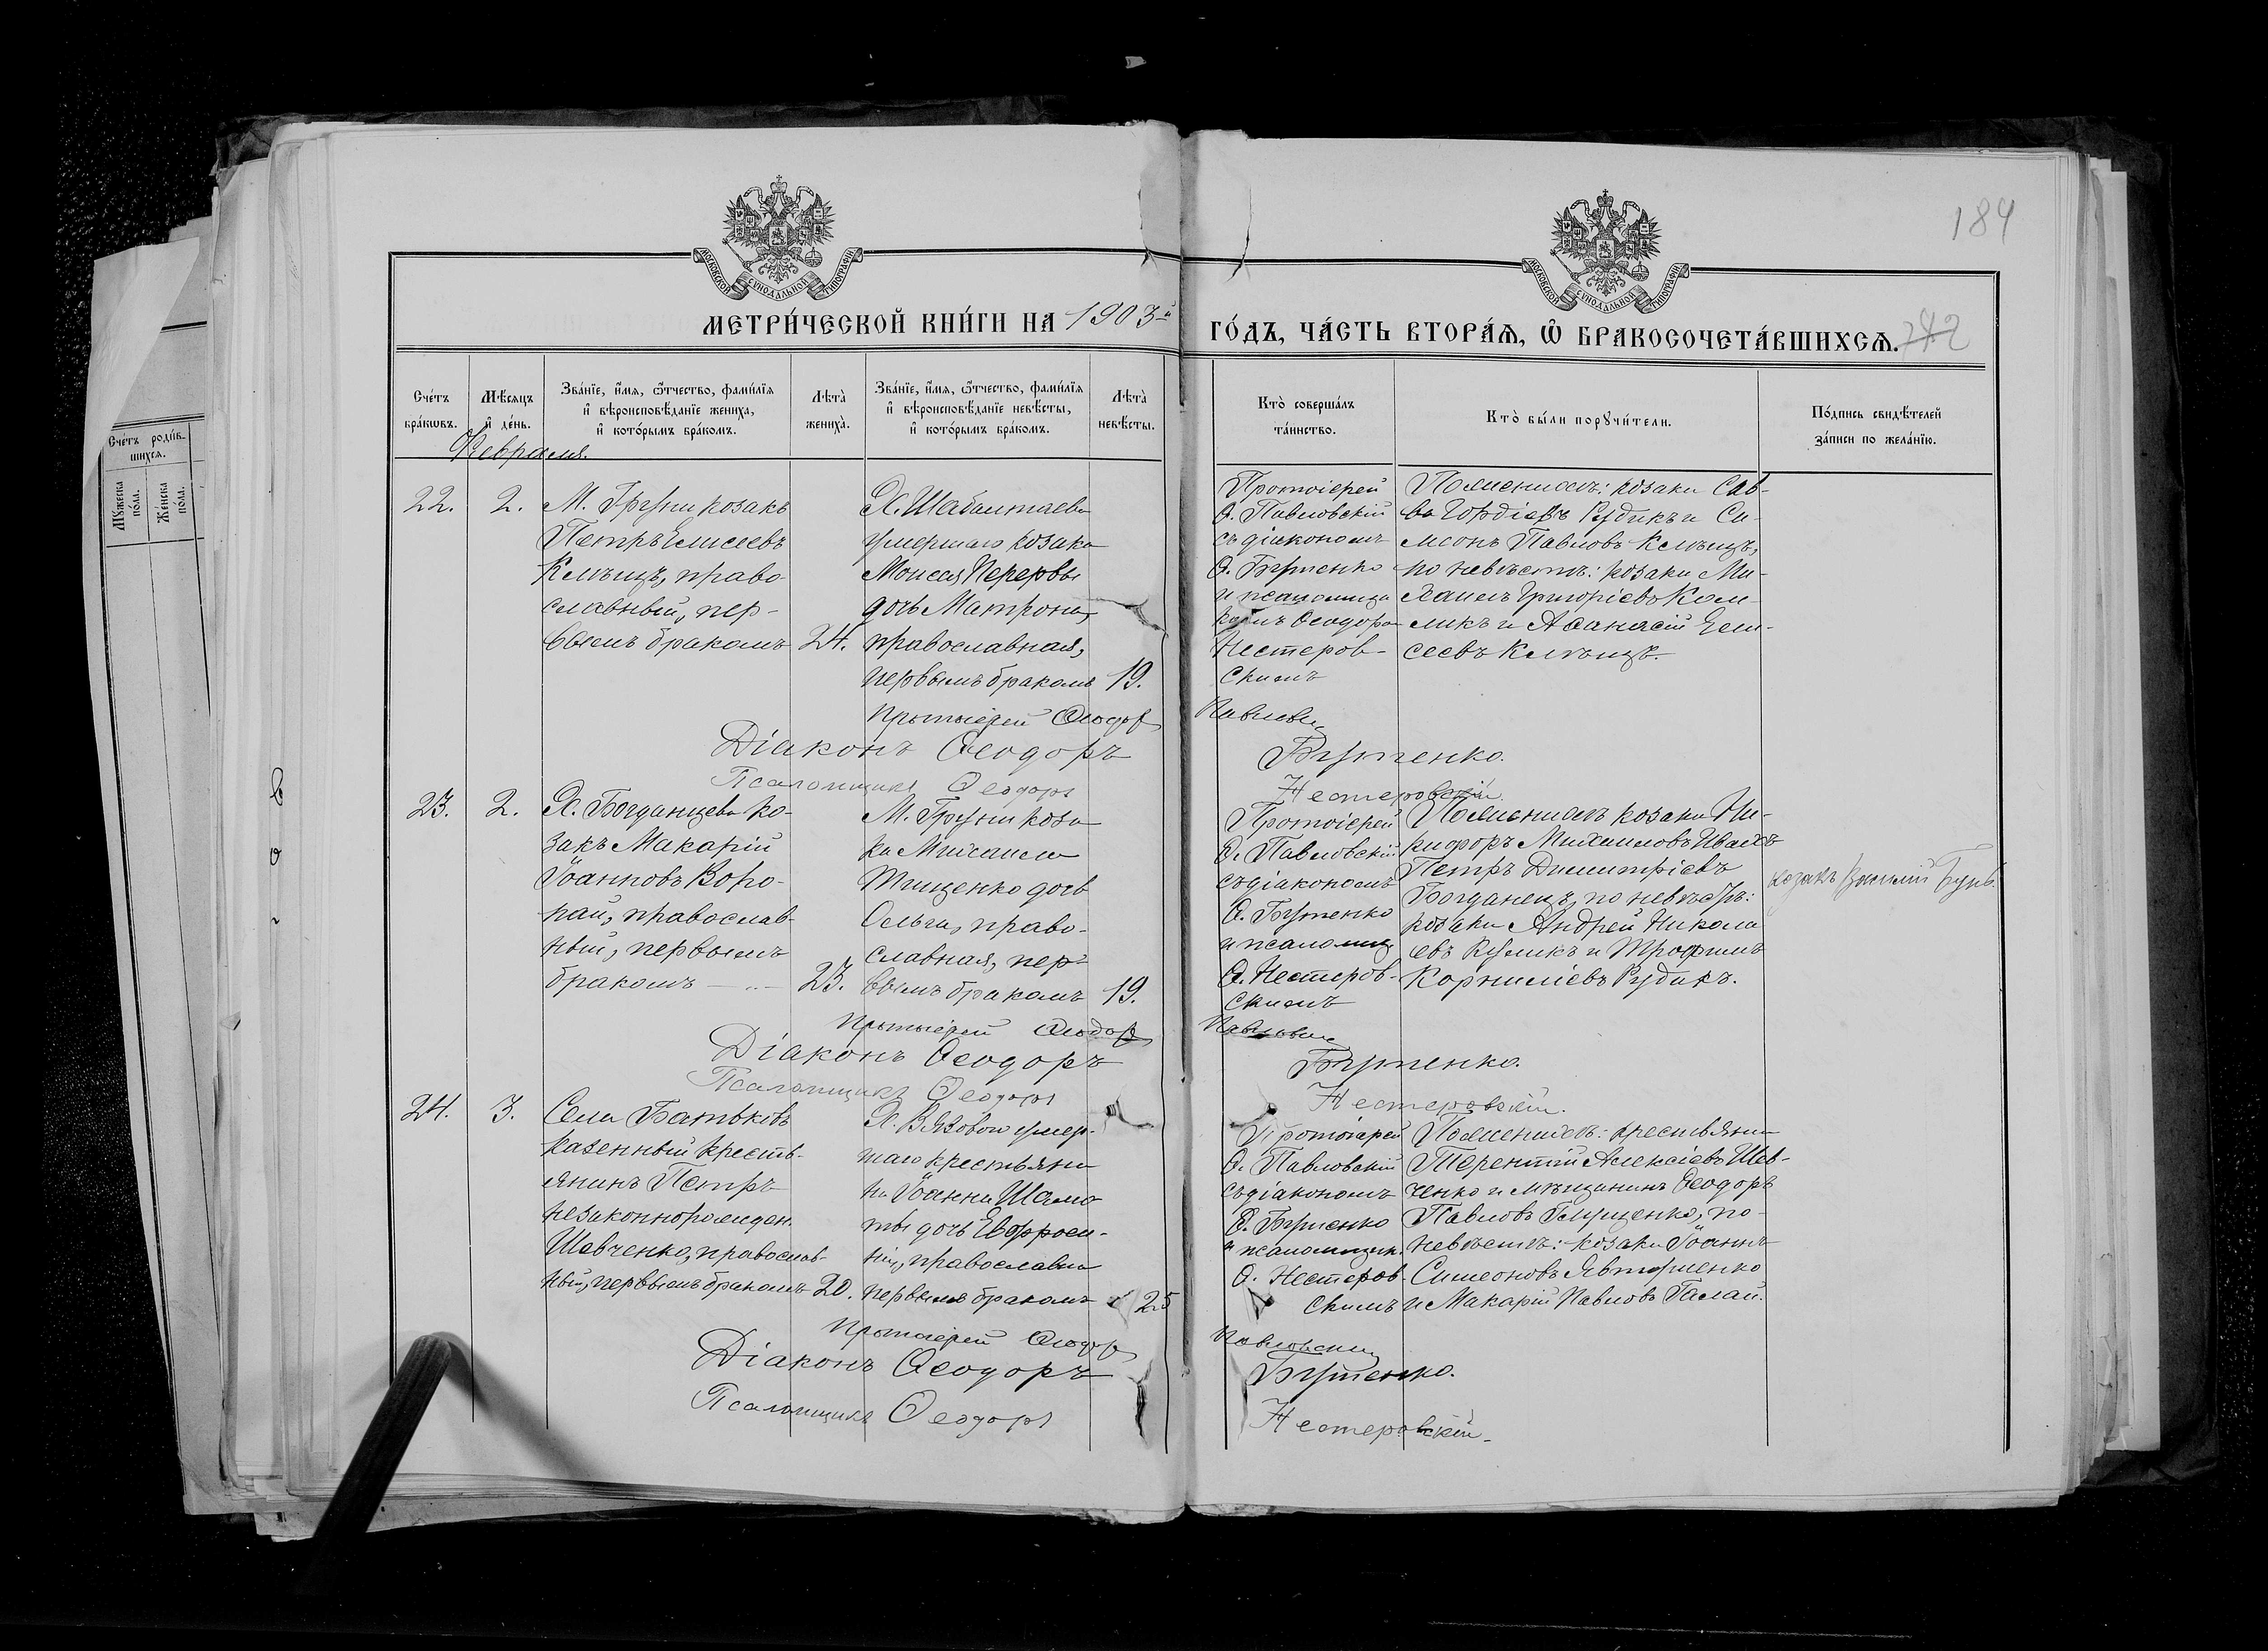 184
МОСКОВСКОЙ СѴНОДАЛЬНОЙ ТИПОГРАФІИ
МОСКОВСКОЙ СѴНОДАЛЬНОЙ ТИПОГРАФІИ
МЕТРИ́ЧЕСКОЙ КНИ́ГИ НА 1903й ГО́ДЪ, ЧА́СТЬ ВТОРА́Ѧ, Ѡ҆ БРАКОСОЧЕТА́ВШИХСѦ.
Сче́тъ бра́кѡвъ.
Мѣ́сяцъ и҆ де́нь.
Зва́нїе, и҆́мя, ѻ҆́тчество, фами́лїя
и҆ вѣроисповѣ́данїе жениха̀,
и҆ кото́рымъ бра́комъ.
Лѣта̀ жениха̀.
Зва́нїе, и҆́мя, ѻ҆́тчество, фами́лїя
и҆ вѣроисповѣ́данїе невѣ́сты,
и҆ кото́рымъ бра́комъ.
Лѣта̀ невѣ́сты.
Кто̀ соверша́лъ
та́инство.
Кто̀ бы́ли порꙋчи́тели.
По́дпись свидѣ́телей
за́писи по жела́нїю.
Сче́тъ роди́в-
шихся.
Мꙋ́жеска пола.
Же́нска по́ла.
Февраля.
22.
2.
М. Груни козакъ
Петръ Елисеевъ
Клѣцъ, право-
славный, пер-
вымъ бракомъ
24.
умершаго козака
Моисея Перервы
дочь Матрона,
православная,
первымъ бракомъ
19.
Протоіерей
Ѳ. Павловскій
съ діакономъ
Ѳ. Бутенко
и псаломщи
комъ Ѳеодоро
Нестеров-
скимъ
По женихѣ: козаки Сав-
ва Гордіевъ Рудикъ и Си-
меонъ Павловъ Клѣцъ,
по невѣстѣ: козаки Ми-
хаилъ Григоріевъ Ком-
ликъ и Аѳанасій Ели-
сеевъ Клѣцъ.
Протоіерей Ѳеодоръ
Діаконъ Ѳеодоръ Бутенко.
Псаломщикъ Ѳеодоръ Нестеровскій.
23.
2.
Х. Богданцева ко-
закъ Макарій
Іоанновъ Воро-
пай, православ-
ный, первымъ
бракомъ
23.
М. Груни коза
ка Михаила
Тищенко дочь
Ольга, право-
славная, пер-
вымъ бракомъ
19.
Протоіерей
Ѳ. Павловскій
съ діакономъ
Ѳ. Бутенко
и псаломщ
Ѳ. Нестеров-
скимъ
По женихѣ козаки Ни-
кифоръ Михаиловъ
Петръ Димитріевъ
Богданецъ, по невѣстѣ:
козаки Андрей Никола
евъ Куликъ и Трофимъ
Корниліевъ Рудикъ.
козакъ Василій
Протоіерей Ѳеодоръ
Діаконъ Ѳеодоръ Бутенко.
Псаломщикъ Ѳеодоръ Нестеровскій.
24.
3.
Села Батьковъ
казенный кресть-
янинъ Петръ
незаконнорожден.
Шевченко, православ-
ный, первымъ бракомъ
20.
Х. Вязовой умер-
шаго крестьяни
на Іоанна
ты дочь Евфроси-
нія, православна
первымъ бракомъ
25
Протоіерей
Ѳ. Павловскій
съ діакономъ
Ѳ. Бутенко
и псаломщик.
Ѳ. Нестеров-
скимъ
По женихѣ: крестьянин
Терентій Алексіевъ Шев-
ченко и мѣщанинъ Ѳеодоръ
Павловъ Глущенко, по
невѣстѣ: козаки Іоаннъ
Симеоновъ Явтушенко
и Макарій Павловъ Галай.
Протоіерей Ѳеодоръ Павловскій
Діаконъ Ѳеодоръ Бутенко.
Псаломщикъ Ѳеодоръ Нестеровскій.